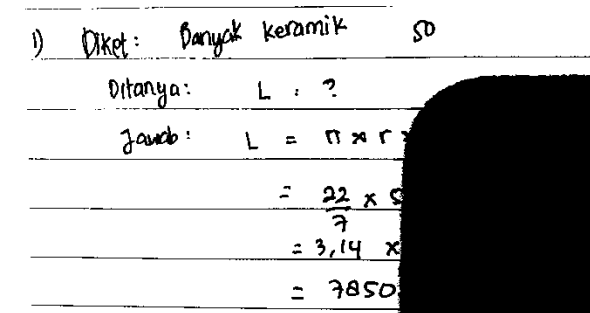 1) Diket: Banyak keramik 50
Ditanya: L : ?
Jawab: L = π x r
= 22/7 x
= 3,14 x
= 7850